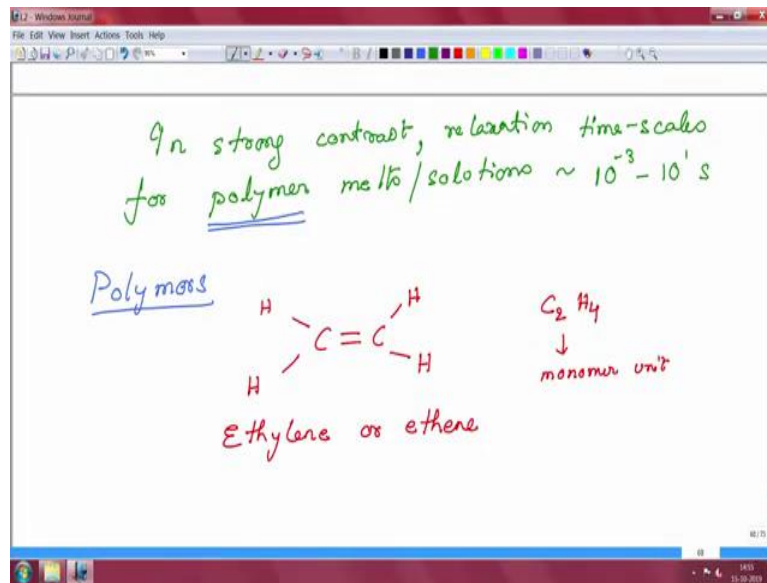 L2 - Windows Journal
File Edit View Insert Actions Tools Help
In strong contrast, relaxation time-scales
for polymer melts/solutions ~ 10⁻³ - 10¹ s
Polymers
H H
C = C
H H
C₂ H₄
↓
monomer unit
Ethylene or ethene
68
14:55
15-10-2019